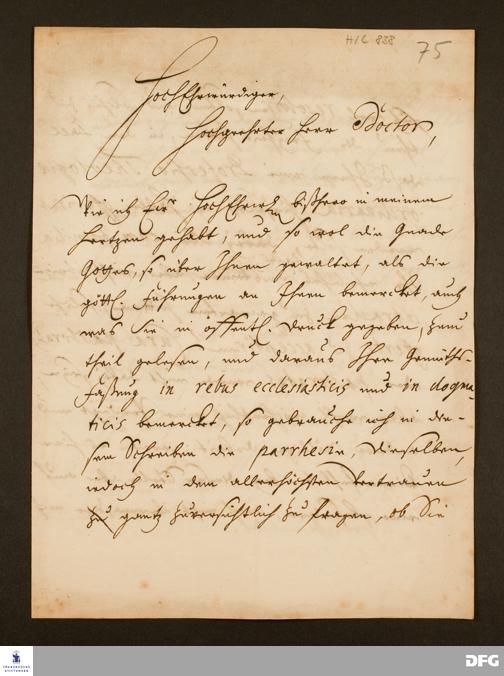 H/C 838
75
HochEhrwürdiger,
Hochgeehrter Herr Doctor,
Wie ich Eur HochEhrw. bißhero in meinem
Hertzen gehabt, und so wol die Gnade
Gottes, so über Ihnen gewaltet, als die
göttl. Führungen an Ihnen bemercket, auch
was Sie in öffentl. Druck gegeben, zum
theil gelesen, und daraus Ihre Gemüths-
Faßung in rebus ecclesiasticis und in dogma-
ticis bemercket, so gebrauche ich in die-
sem Schreiben die parrhesie, Dieselben,
iedoch in dem allerhöchsten Vertrauen
gantz zuversichtlich zu fragen, ob Sie
FRANCKESCHE
STIFTUNGEN
DFG